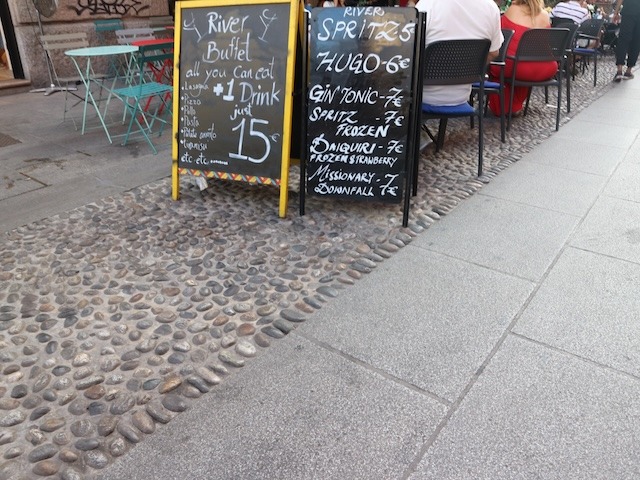 River
Buffet
all you can eat
+1 Drink
just
• Lasagna
• Pizza
• Pollo
• Pasta
15€
etc etc
RIVER
SPRITZ 5
HUGO-6€
GIN TONIC-7€
SPRITZ -7€
FROZEN
DAIQUIRI-7€
FROZEN STRAWBERRY
MISSIONARY-7€
DOWNFALL